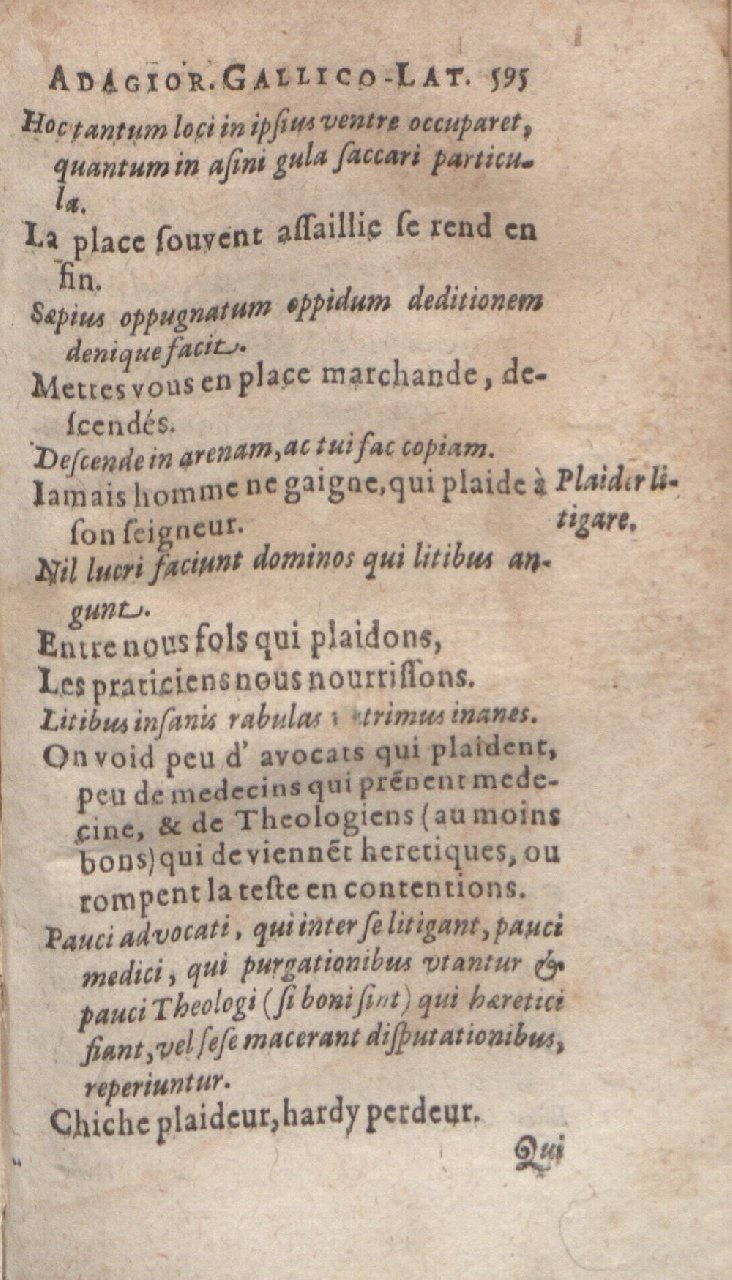 ADAGIOR. GALLICO-LAT. 595
Hoc tantum loci in ipſius ventre occuparet,
quantum in aſini gula ſaccari particu-
læ.
La place ſouvent aſſaillie ſe rend en
fin.
Sæpius oppugnatum oppidum deditionem
denique facit.
Mettes vous en place marchande, de-
ſcendés.
Deſcende in arenam, ac tui fac copiam.
Iamais homme ne gaigne, qui plaide à
ſon ſeigneur.
Plaider li-
tigare.
Nil lucri faciunt dominos qui litibus an-
gunt.
Entre nous fols qui plaidons,
Les praticiens nous nourriſſons.
Litibus inſanis rabulas inanes.
On void peu d' avocats qui plaident,
peu de medecins qui prẽnent mede-
cine, & de Theologiens (au moins
bons) qui deviennẽt heretiques, ou
rompent la teſte en contentions.
Pauci advocati, qui inter ſe litigant, pauci
medici, qui purgationibus vtantur &
pauci Theologi (ſi boni ſint) qui hæretici
fiant, vel ſeſe macerant diſputationibus,
reperiuntur.
Chiche plaideur, hardy perdeur.
Qui